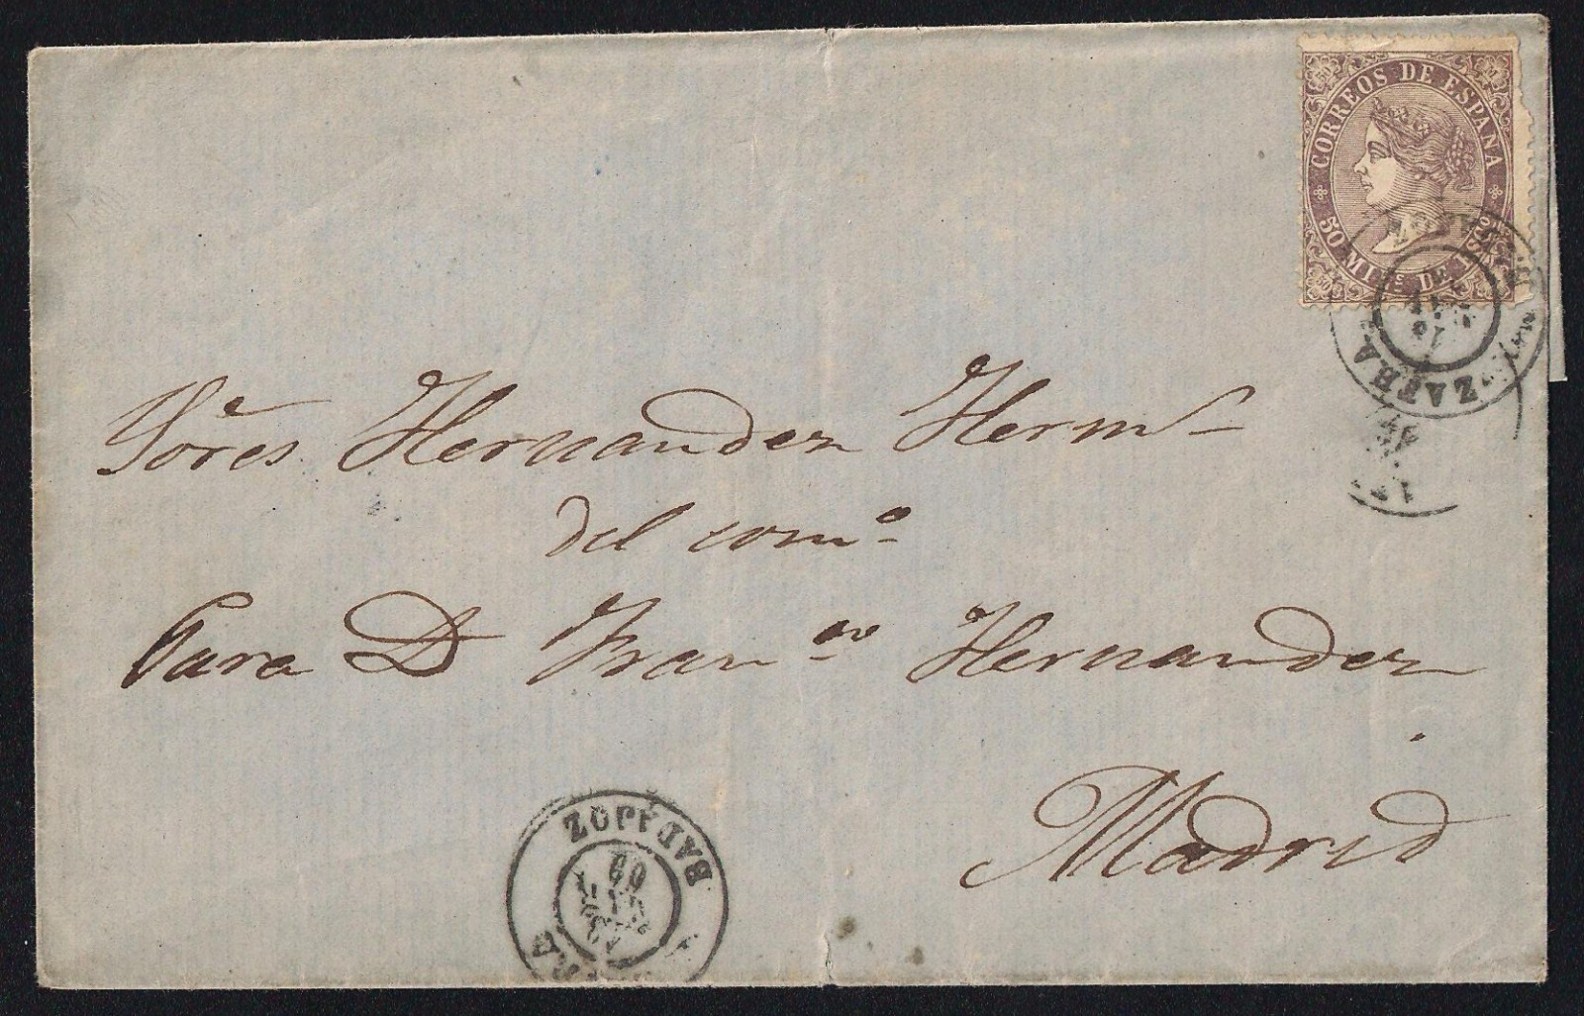 CORREOS DE ESPAÑA
50 MILS DE ESCO
ZAFRA
Sōres Hernandez Herms
del como
Para D Franco Hernandez
Madrid
BADAJOZ
69